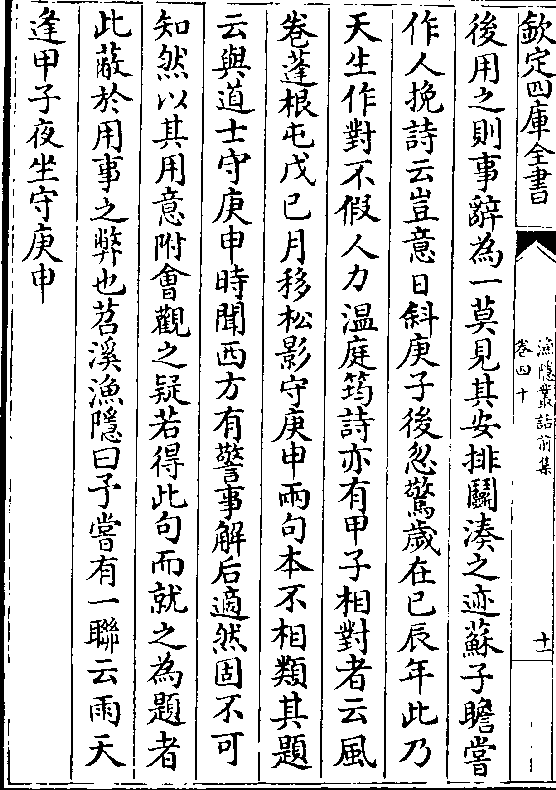 欽定四庫全書
漁隱叢話前集
卷四十
十一
後用之則事辭為一莫見其安排鬭湊之迹蘇子瞻嘗
作人挽詩云豈意日斜庚子後忽驚歲在已辰年此乃
天生作對不假人力溫庭筠詩亦有甲子相對者云風
卷蓬根屯戊已月移松影守庚申兩句本不相類其題
云與道士守庚申時聞西方有警事解后適然固不可
知然以其用意附會觀之疑若得此句而就之為題者
此蔽於用事之弊也苕溪漁隱曰予嘗有一聯云雨天
逢甲子夜坐守庚申